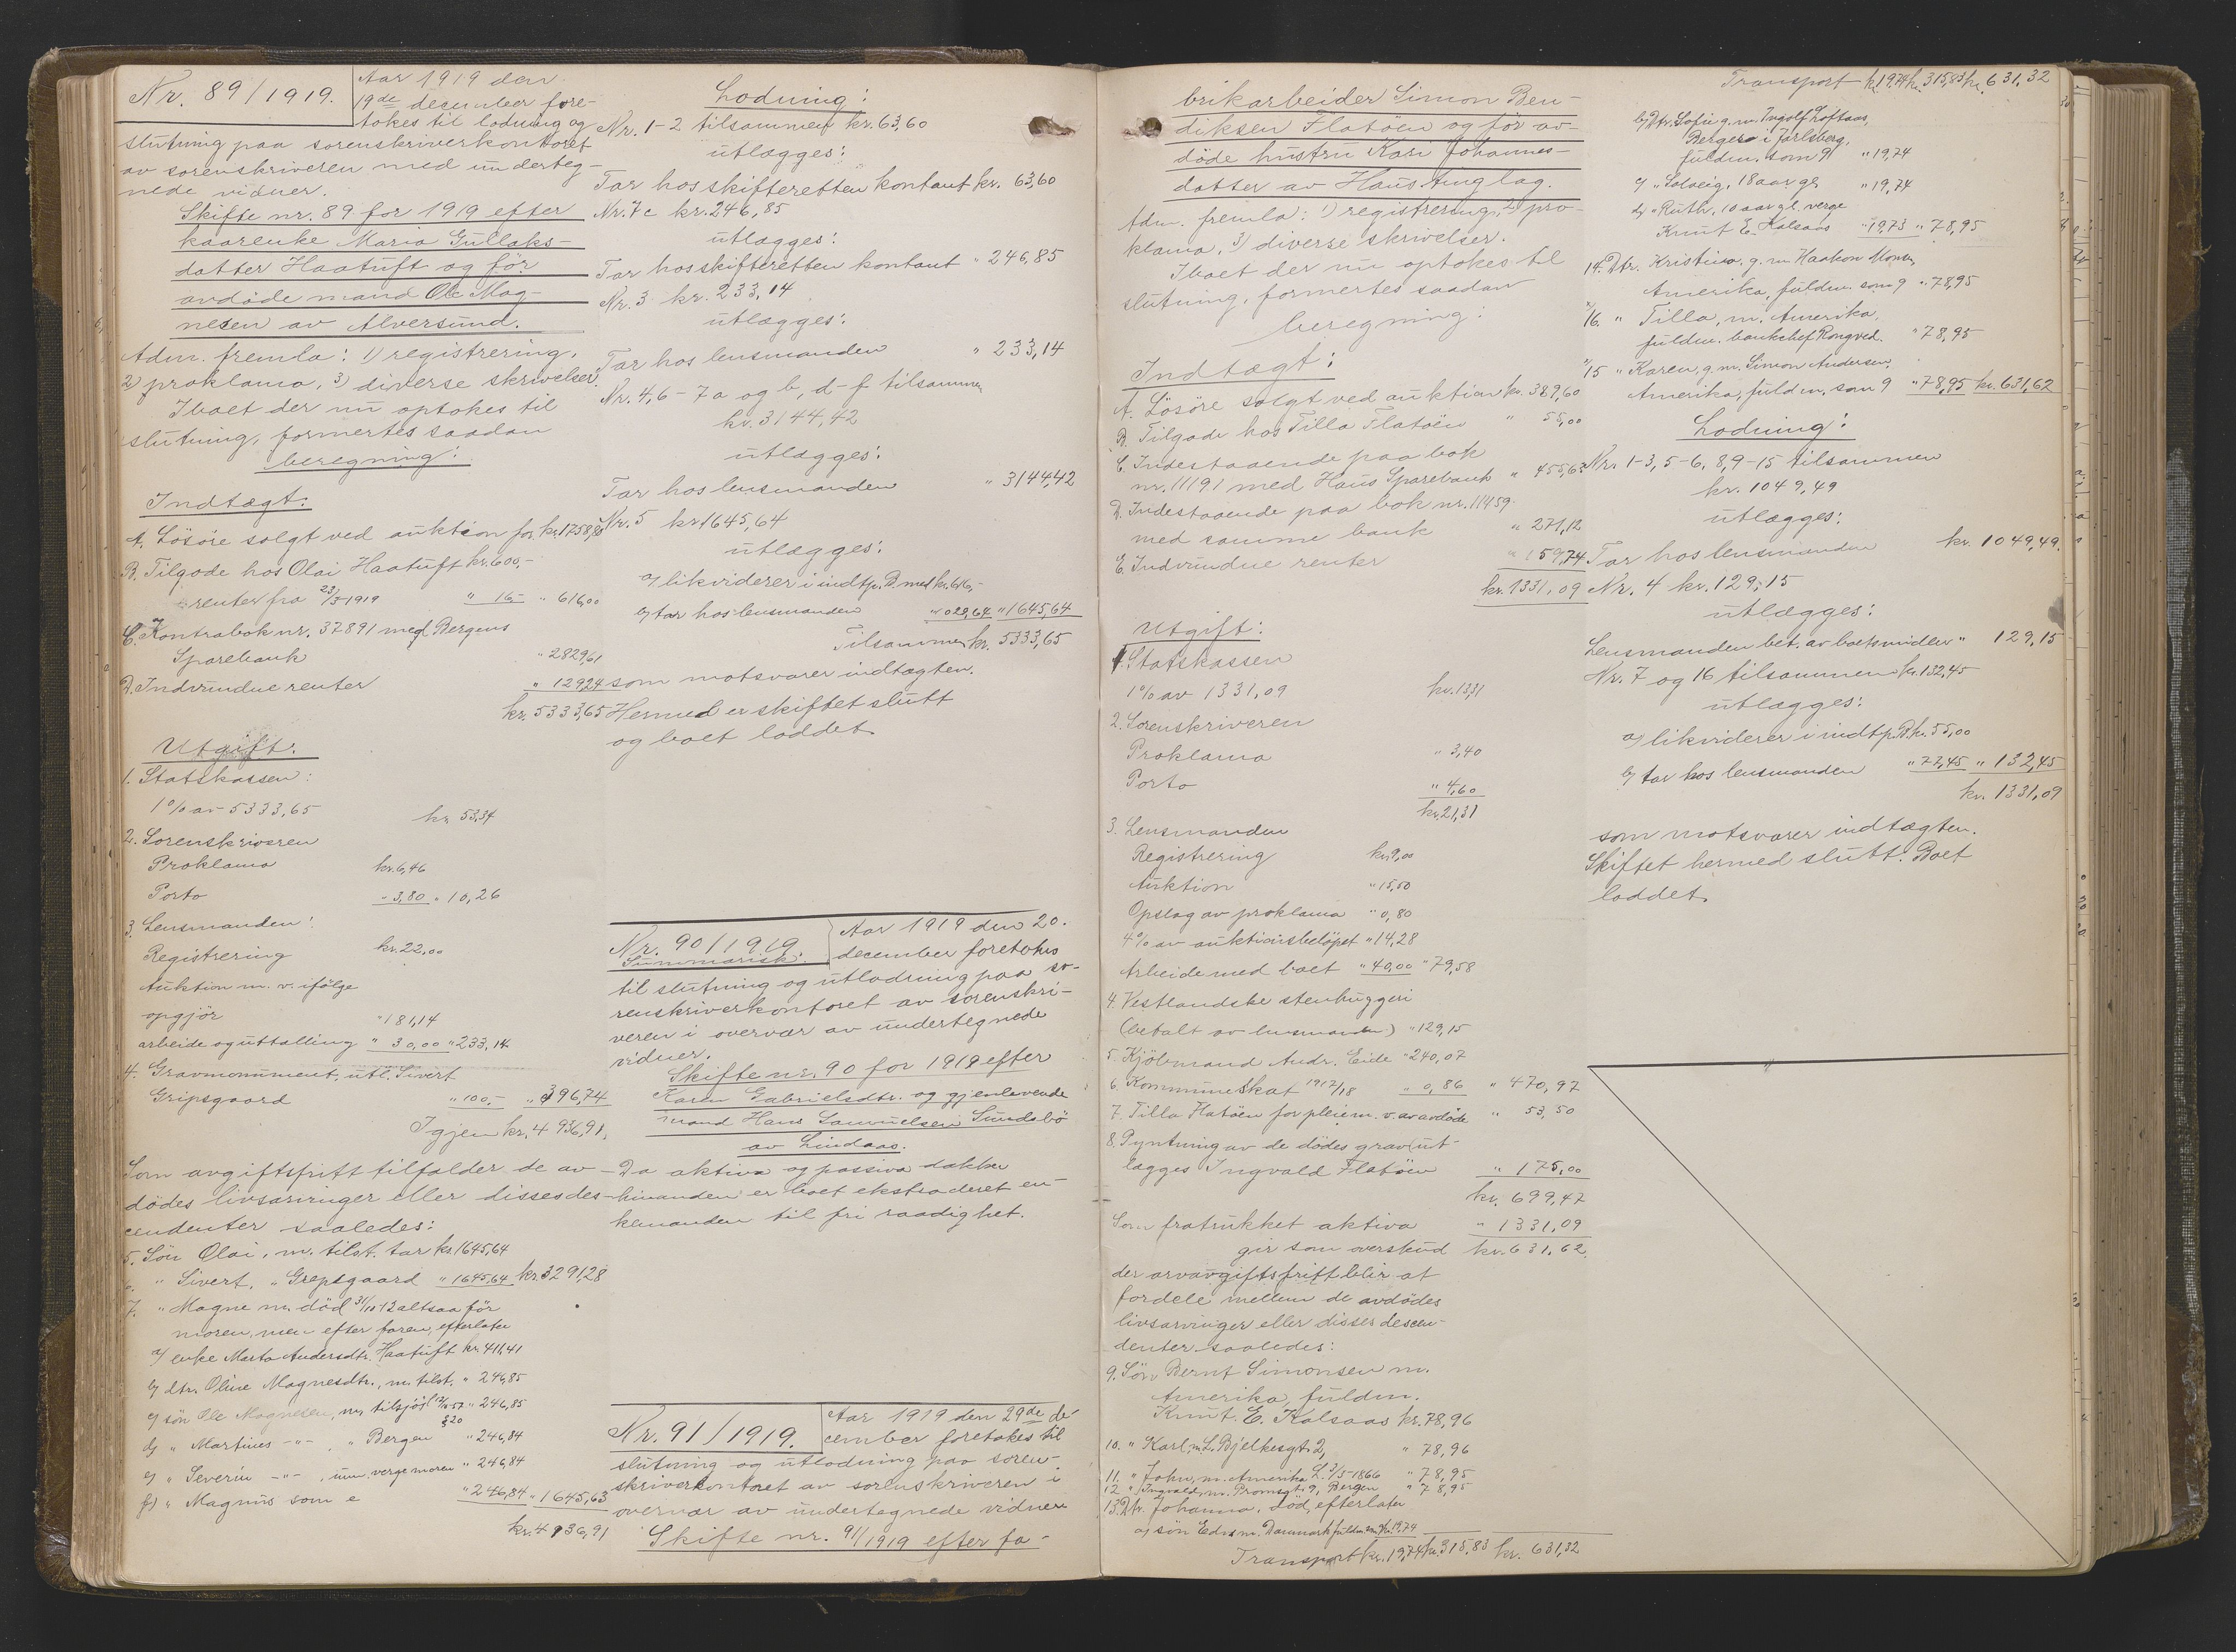 Nr. 89/1919.
Aar 1919 den
19de desember fore-
tokes til lodning og
slutning paa sorenskriverkontoret
av sorenskriveren med underteg-
nede vidner.
Skifte nr. 89 for 1919 efter
kaarenke Maria Gullaks-
datter Haatuft og før
avdøde mand Ole Mag-
nesen av Alversund.
Adm. fremla: 1) registrering,
2) proklama, 3) diverse skrivelser.
I boet der nu optokes til
slutning, formertes saadan
beregning:
Indtægt:
A. Løsøre solgt ved auktion for kr. 1758,80
B. Tilgode hos Olai Haatuft kr. 600,-
renter fra 23/5 1919 " 16,- " 616,00
C. Kontrabok nr. 37891 med Bergens
Sparebank " 2829,61
D. Indvundne renter " 129,24
kr. 5333,65
Utgift:
1. Statskassen:
1% av 5333,65 kr. 53,34
2. Sorenskriveren
Proklama kr. 6,46
Porto " 3,80 " 10,26
3. Lensmanden:
Registrering kr. 22,00
Auktion m. v. ifølge
opgjør " 181,14
arbeide og uttælling " 30,00 " 233,14
4. Gravmonument, utl. Sivert
Gripsgaard " 100,- " 396,74
Igjen kr. 4936,91
Som avgiftsfritt tilfalder de av-
dødes livsarvinger eller disses des-
cendenter saaledes:
5. Søn Olai, m. tilst. tar kr. 1645,64
" Sivert, " Grepsgaard " 1645,64 kr. 3291,28
7. " Magne m. død 31/10-12 altsaa før
moren, men efter faren, efterlater
a) enke Marta Andersdtr. Haatuft kr. 411,41
b) dtr. Oline Magnesdtr., m. tilst. " 246,85
c) søn Ole Magnesen, m. tilsjøs " 246,85
d) " Martines -"- , " Bergen " 246,84
e) " Severin -"- , um. verge moren " 246,84
f) " Magnus som e " 246,84 " 1645,63
kr. 4936,91
Lodning:
Nr. 1-2 tilsammen kr. 63,60
utlægges:
Tar hos skifteretten kontant kr. 63,60
Nr. 7c kr. 246,85
utlægges:
Tar hos skifteretten kontant " 246,85
Nr. 3 kr. 233,14
utlægges:
Tar hos lensmanden " 233,14
Nr. 4, 6 - 7a og b, d-f tilsammen
kr. 3144,42
utlægges:
Tar hos lensmanden " 3144,42
Nr. 5 kr. 1645,64
utlægges:
a) likviderer i indtp. B med kr. 616,-
b) tar hos lensmanden " 1029,64 " 1645,64
Tilsammen kr. 5333,65
som motsvarer indtægten.
Hermed er skiftet slutt
og boet loddet.
Nr. 90/1919.
Summarisk.
Aar 1919 den 20.
december foretokes
til slutning og utlodning paa so-
renskriverkontoret av sorenskri-
veren i overvær av undertegnede
vidner.
Skifte nr. 90 for 1919 efter
Karen Gabrielsdtr. og gjenlevende
mand Hans Samuelsen Sundsbø
av Lindaas.
Da aktiva og passiva dækker
hinanden er boet ekstraderet en-
kemanden til fri raadighet.
Nr. 91/1919.
Aar 1919 den 29de de-
cember foretokes til
slutning og utlodning paa soren-
skriverkontoret av sorenskriveren i
overvær av undertegnede vidner
Skifte nr. 91/1919 efter fa-
brikarbeider Simon Ben-
diksen Flatøen og før av-
døde hustru Kari Johannes-
datter av Haus tinglag.
Adm. fremla: 1) registrering, 2) pro-
klama, 3) diverse skrivelser.
I boet der nu optokes til
slutning, formertes saadan
beregning:
Indtægt:
A. Løsøre solgt ved auktion kr. 389,60
B. Tilgode hos Tilla Flatøen " 55,00
C. Indestaaende paa bok
nr. 11191 med Haus Sparebank " 455,63
D. Indestaaende paa bok nr. 11459
med samme bank " 271,12
E. Indvundne renter " 159,74
kr. 1331,09
Utgift:
1. Statskassen
1% av 1331,09 kr. 13,31
2. Sorenskriveren
Proklama " 3,40
Porto " 4,60
kr. 21,31
3. Lensmanden
Registrering kr. 9,00
Auktion " 15,50
Opslag av proklama " 0,80
4% av auktionsbeløpet " 14,28
Arbeide med boet " 40,00 " 79,58
4. Vestlandske stenhuggeri
(betalt av lensmanden) " 129,15
5. Kjøbmand Andr. Eide " 240,07
6. Kommuneskat 1917/18 " 0,86 " 470,97
7. Tilla Flatøen for pleie m. v. av avdøde " 53,50
8. Pyntning av de dødes grav (ut-
lægges Ingvald Flatøen " 175,00
kr. 699,47
Som fratrukket aktiva " 1331,09
gir som overskud kr. 631,62
der arvavgiftsfritt blir at
fordele mellem de avdødes
livsarvinger eller disses descen-
denter saaledes:
9. Søn Bernt Simonsen m.
Amerika, fuldm.
Knut E. Kalsaas kr. 78,96
10. " Karl m. L. Bjelkesgt. 2, " 78,96
11. " John, m. Amerika L. 3/5-1866 " 78,95
12 " Ingvald, m. Promsgt. 9, Bergen " 78,95
13. Dtr. Johanna, død, efterlater
a) søn Edv. m. Danmark fuldm. som 9 kr. 19,74
Transport kr. 19,74 kr. 315,83 kr. 631,32
Transport kr. 19,74 kr. 315,83 kr. 631,32
b) Dtr. Sofie g. m. Ingolf Loftaas,
Bergerø i Jarlsberg,
fuldm. som 9 " 19,74
c) " Solveig, 18 aar gl. " 19,74
d) " Ruth, 10 aar gl. verge
Knut E. Kalsaas " 19,73 " 78,95
14. Dtr. Kristina, g. m. Haakon Monsen,
Amerika, fuldm. som 9 " 78,95
16. " Tilla, m. Amerika,
fuldm. bankchef Rongved. " 78,95
15 " Karen, g. m. Simon Andersen,
Amerika, fuldm. som 9 " 78,95 kr. 631,62
Lodning:
Nr. 1-3, 5-6, 8, 9-15 tilsammen
kr. 1049,49
utlægges:
Tar hos lensmanden kr. 1049,49.
Nr. 4 kr. 129,15
utlægges:
Lensmanden bet. av boets midler " 129,15
Nr. 7 og 16 tilsammen kr. 132,45
utlægges:
a) likviderer i indtp. B. kr. 55,00
b) tar hos lensmanden " 77,45 " 132,45
kr. 1331,09
som motsvarer indtægten.
Skiftet hermed slutt. Boet
loddet.